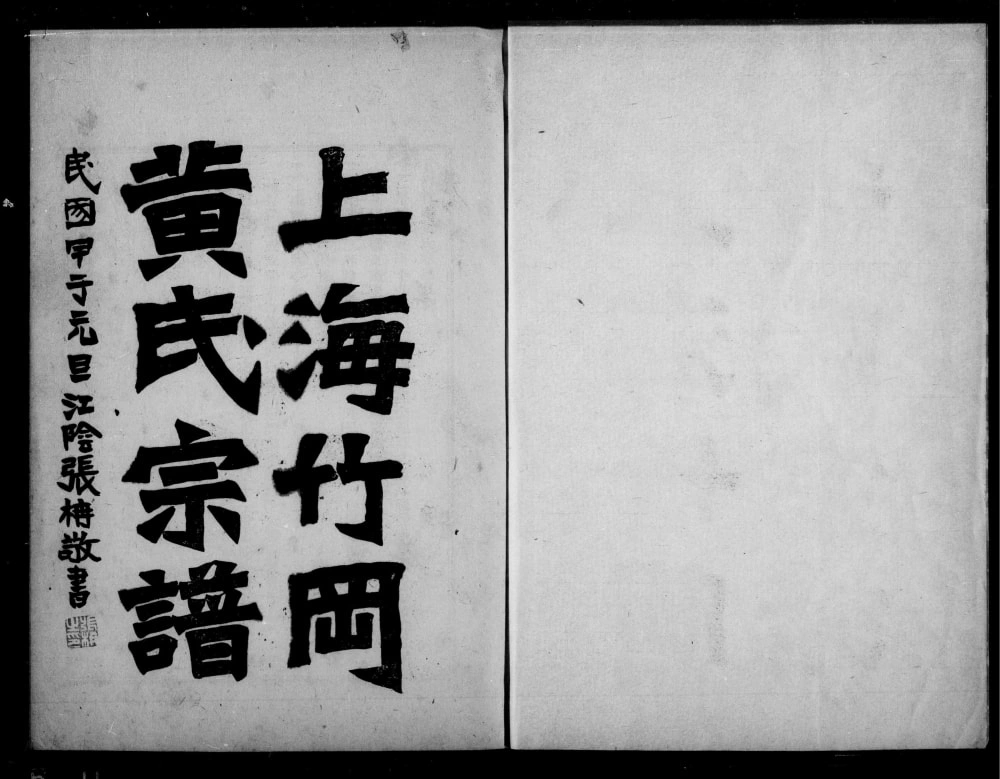 上海竹岡
黃氏宗譜
民國甲子元旦江陰張枬敬書